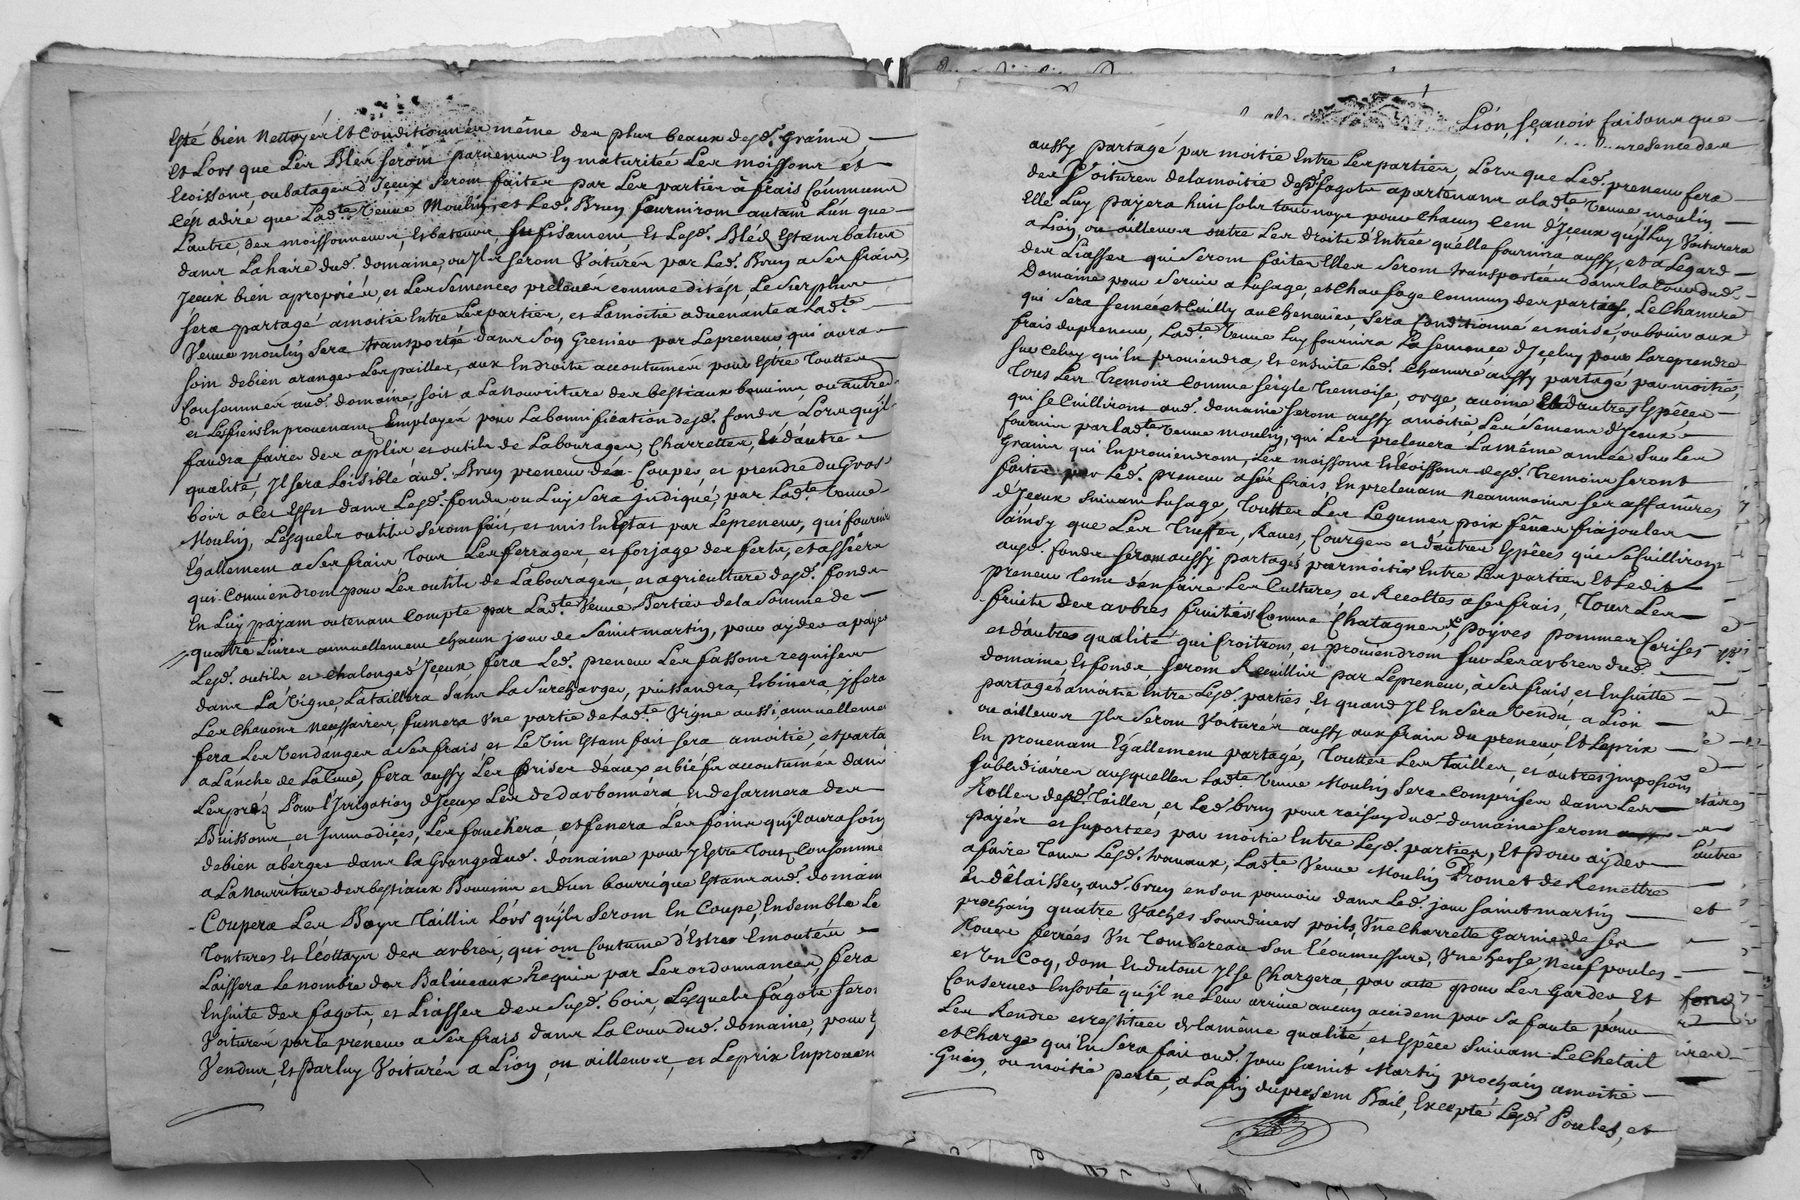 esté bien nettoyér et conditionnér même der plur beaux desd. grainr
et Lors que Ler Bléz seront parvenur en maturitée Ler moissonr et
Ecoissonr, ou batager d'Jceux seront faiter par Ler partier à frais communr
c'est adire que Ladte veuve Moulin, et Led. Brun fourniront autant L'un que
L'autre, der moissonneur, et bateur sufisament, et Lesd. Bléd estanr batur
danr La haire dud. domaine, ou Jlr seront voiturér par Led. Brun a ser fraix
Jceux bien aproprier, et Ler semences prelevér comme dit est, Le surplur
sera partagé amoitié entre Ler partier, et Lamoitié advenante a Ladte
veuve moulin sera transportée danr son grenier par Lepreneur qui aura
soin debien aranger Ler pailler, aux endroits accoutumér pour estre toutter
consommér aud. domaine soit a La nourriture der bestiaux bouvinr, ou autrer
et Lesfiens en provenant Employer pour La bonnification desd. fondr Lors qu'il
faudra faire der aplis, et outils de Labourager, Charretter, et d'autre
qualité, Jl sera Loisible aud. Brun preneur de Couper, et prendre du Gros
boir a cet effet danr Lesd. fondr ou Luy sera jndiqué, par Ladte veuve
Moulin, Lesquelr outilr seront fait, et mis en Estat par Lepreneur, qui fournira
Egallement a ser fraix tour Ler ferrager, et forjage der ferts, et assiéra
qui conviendront pour Ler outilr de Labourager, et agriculture desd. fondr
en Luy payant ou tenant compte par Ladte veuve Bertier de la somme de
quatre Livrer annuellement chacun jour de Saint martin, pour ayder a payer
Lesd. outilr et chalonge d'Jceux fera Led. preneur Ler fassonr requiser
danr La vigne, La taillera sanr La surcharger, piussandra, et binera, y fera
Ler chavonr necessairer, fumera vne partie de Ladte vigne aussi annuelleme
fera Ler vendanger a ser frais et Le vin estant fait sera amoitié, et parta
a Lanche de La cuve, fera aussy Ler priser d'eaux et biefr accoutumér danr
Ler prez Pour L'jrrigation d'Jceux Ler dedarbonnera et desarmera der
Buissonr, et jmmodicer, Ler fauchera, et fenera Ler foinr qu'il aura soin
debien aberger danr La Grange dud. domaine pour y estre tout consommé
a La nourriture der bestiaux Bouvinr et d'un bourrique estanr aud. domain
Coupera Ler Boyr Taillir Lors qu'ilr seront en coupe, ensemble Le
tontures et Ecottayr der arbrer, qui ont coutume d'Estre Emoutér
Laissera Le nombre der Baliveaux requir par Ler ordonnancer, fera
Ensuite der fagotr, et Liasser der susd. boir, Lesquelr fagotr seron
voiturér par Le preneur a ser frais danr La cour dud. domaine, pour y
vendur, et par Luy voiturér a Lion, ou ailleurr, et Le prix en proven
Lion, sçavoir faisonr que
presence der
aussy partagé par moitié Entre Ler partier, Lors que Led. preneur fera
der voiturer de la moitié desd. fagotr apartenanr a ladte veuve moulin
elle Luy payera huit solr tournoyr pour chacun cent d'Jceux qu'il Luy voiturera
a Lion, ou ailleurr outre Ler droits d'Entrée qu'elle fournira aussy, et a L'egard
der Liasser qui seront faiter eller seront transportéer danr la Cour dud.
Domaine pour servir a L'usage, et chaufage commun der partier, Le chanvre
qui sera semé et cuilly au chenevier, sera conditionné et naisé, ou bouir aux
frais du preneur, Ladte veuve Luy fournira La semence d'Jceluy pour La reprendre
sur celuy qui en proviendra, et ensuite Led. chanvre aussy partagé par moitié,
tous Ler tremoir comme seigle tremoise, orge, avoine et d'autres espêcer
qui se cuilliront aud. domaine seront aussy amoitié, Ler sémenr d'Jceux
fournir par Ladte veuve moulin, qui Ler prelevera La même année sur Ler
Grainr qui en proviendront, Ler moissonr et Ecoissonr desd. tremoir seront
faiter par Led. preneur a ser frais, en prelevant neanmoinr ser affanûres
d'Jceux suivant L'usage, toutter Ler Legumer poix fêver fiajouler
ainsy que Ler truffer, Raves, Courger et d'autrer espêces qui se cuilliront
ausd. fondr seront aussy partagés par moitié entre Ler partier et Ledit
preneur tenu d'en faire Ler cultures et Récoltes a ser frais, tour Ler
fruits der arbres fruitiers comme Chatagner, poyres pommer Cerises
et d'autres qualité qui croitront, et proviendront sur Ler arbrer dud.
domaine et fondr seront Recuillir par Lepreneur, à ser frais, et ensuitte
partagés amoitié entre Lesd. parties, et quand Jl en sera vendu, a Lion
ou ailleurr Jlr seront voiturér aussy aux fraix du preneur, et Leprix
en provenant Egallement partagé, toutter Ler tailler, et autres jmpositions
subsidiairer ausqueller Ladte veuve Moulin sera compriser danr Ler
Roller desd. tailler, et Led. brun pour raison dud. domaine seront
payér et suportées par moitié entre Lesd. partier, et pour ayder
a faire tour Lesd. travaux, Ladte veuve Moulin Promet de Remettre
et délaisser, aud. brun en son pouvoir danr Led. jour saint martin
prochain quatre vaches sour diverr poilr, vne charrette garnie de ser
Rouer ferrées vn tombereau son Ecoumassure, vne herse neuf poules
et vn Coq, dont et du tout Jl se chargera, par acte pour Ler garder et
Conserver ensorte qu'il ne Leur arrive aucun accident par sa faute pour
Ler Rendre et restituer de la même qualité, et espêce suivant Le chetail
et charge qui en sera fait aud. jour saint Martin prochain amoitié
Guain, ou moitié perte, a La fin du present Bail, excepté Lesd. Poules, et